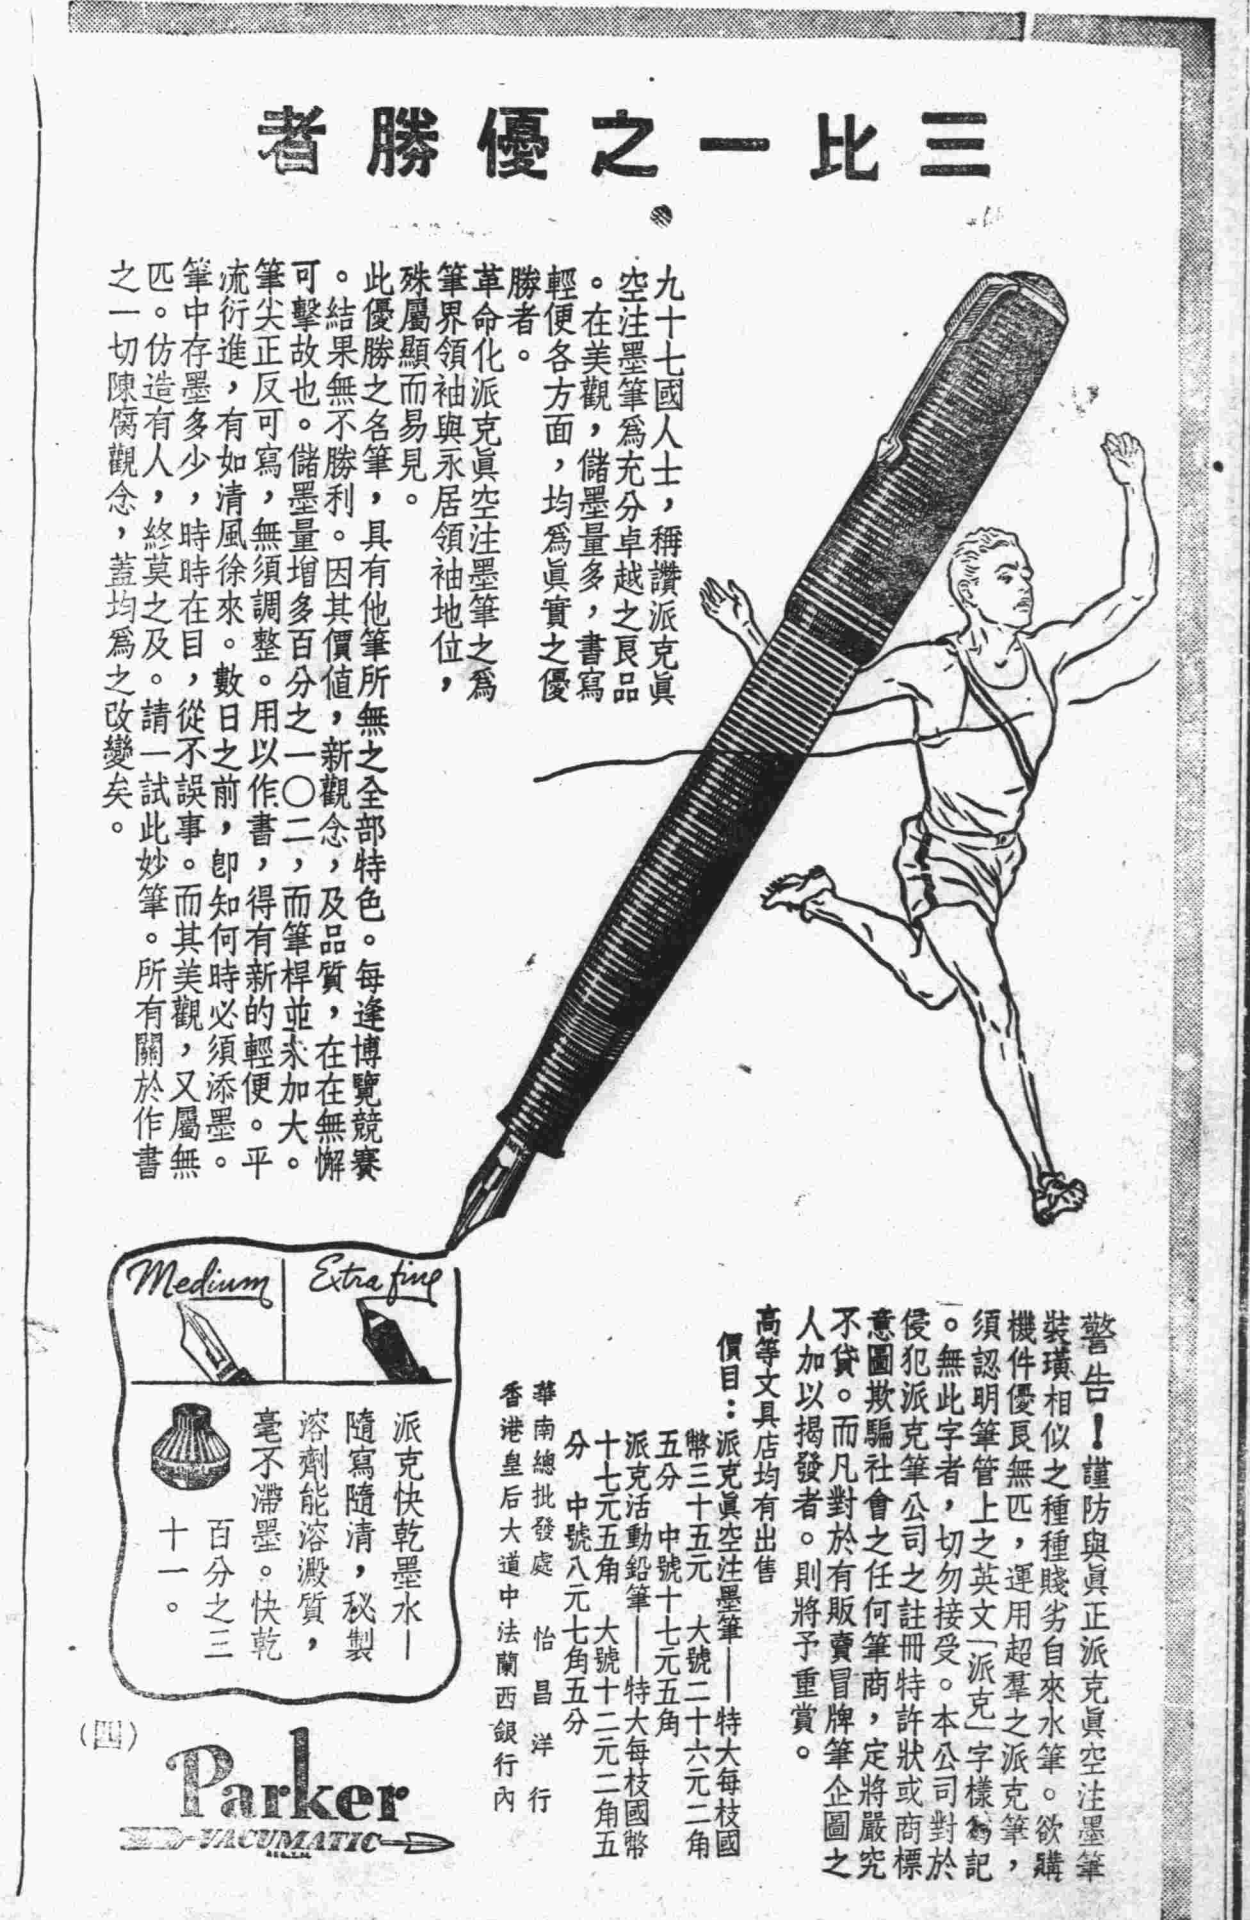 三比一之優勝者
九十七國人士，稱讚派克眞
空注墨筆爲充分卓越之良品
。在美觀，儲墨量多，書寫
輕便各方面，均爲眞實之優
勝者。
革命化派克眞空注墨筆之爲
筆界領袖與永居領袖地位，
殊屬顯而易見。
此優勝之名筆，具有他筆所無之全部特色。每逢博覽競賽
。結果無不勝利。因其價值，新觀念，及品質，在在無懈
可擊故也。儲墨量增多百分之一〇二，而筆桿並未加大。
筆尖正反可寫，無須調整。用以作書，得有新的輕便。平
流衍進，有如清風徐來。數日之前，卽知何時必須添墨。
筆中存墨多少，時時在目，從不誤事。而其美觀，又屬無
匹。仿造有人，終莫之及。請一試此妙筆。所有關於作書
之一切陳腐觀念，蓋均爲之改變矣。
警告！謹防與眞正派克眞空注墨筆
裝璜相似之種種賤劣自來水筆。欲購
機件優良無匹，運用超羣之派克筆，
須認明筆管上之英文「派克」字樣爲記
。無此字者，切勿接受。本公司對於
侵犯派克筆公司之註冊特許狀或商標
意圖欺騙社會之任何筆商，定將嚴究
不貸。而凡對於有販賣冒牌筆企圖之
人加以揭發者。則將予重賞。
高等文具店均有出售
價目：派克眞空注墨筆——特大每枝國
幣三十五元　大號二十六元二角
五分　中號十七元五角
派克活動鉛筆——特大每枝國幣
十七元五角　大號十二元二角五
分　中號八元七角五分
華南總批發處　怡昌洋行
香港皇后大道中法蘭西銀行內
Medium
Extra fine
派克快乾墨水—
隨寫隨清，秘製
溶劑能溶澱質，
毫不滯墨。快乾
百分之三
十一。
（四）
Parker
VACUMATIC